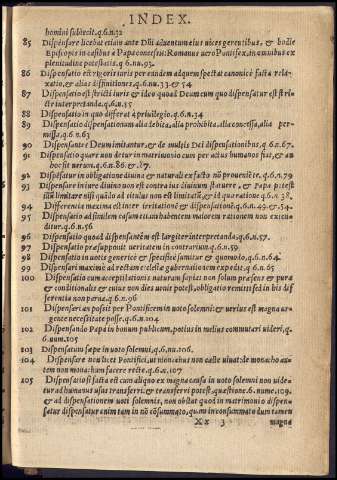 INDEX.
homini subiecit. q.6.n.32
85 Dispensare licebat etiam ante Dñi aduentum eius vices gerentibus, & hodie
Episcopis in casibus à Papa concessis: Romanus uero Pontifex, in omnibus ex
plenitudine potestatis. q.6.nu.93.
86 Dispensatio est rigoris iuris per eundem ad quem spectat canonicè facta rela-
xatio, & alias diffinitiones. q.6.nu.33 & 54
87 Dispensatio est stricti iuris & ideo quoad Deum cum quo dispensatur est stri
ctè interpretanda. q.6.n.55
88 Dispensatio in quo differat à priuilegio. q.6.n.34
89 Dispensatio dispensationum alia debita, alia prohibita, alia concessa, alia per-
missa. q.6.n.63
90 Dispensantes Deum imitantur, & de multis Dei dispensationibus. q.6.n.67.
91 Dispensatio quare non detur in matrimonio cum per actus humanos fiat, & an
hoc sit uerum. q.6.n.86. & 87.
92 Dispēsatur in obligatione diuina & naturali ex facto nō proueniēte. q.6.n.79
93 Dispensare in iure diuino non est contra ius diuinum statuere, & Papa potest
illū limitare nisi quādo ad titulum non est limitatū, & id qua ratione q.6.n.38.
94 Differentia maxima est inter irritationē & dispensationē. q.6.n.49. & 54.
95 Dispensatio ad similem casum etiam habentem maiorem rationem non exten-
ditur. q.6.n.56
96 Dispensatio quoad dispensantēm est largiter interpretanda. q.6.n.57.
97 Dispensatio præsupponit ueritatem in contrarium. q.6.n.59.
98 Dispensatio in uotis genericè & specificè sumitur & quomodo. q.6.n.64.
99 Dispensari maximè ad rectam ecclesiæ gubernationem expedit. q.6.n.65
100 Dispensatio cum acceptilationis naturam sapiat non solum præsens & pura
& conditionalis & cuius non dies uenit potest, obligatio remitti sed in bis dif
ferentia non parua. q.6.n.96
101 Dispensari an possit per Pontificem in uoto solemni: & uerius est magna ur-
gente necessitate posse. q.6.n.104
102 Dispensando Papa in bonum publicum, potius in melius commutari uideri. q.
6.num.105
103 Dispensatum sæpe in uoto solemni, q.6.nu.106.
104 Dispensare non licet Pontifici, ut manens monachus non castè uiuat: de monacho au-
tem non monachum facere rectè. q.6.n.107
105 Dispensatio si facta est cum aliquo ex magna causa in uoto solemni non uide-
tur ad humanos usus transferri, & transferri potest. quæstione.6. nume.109.
& ad dispensationem uoti solemnis, non obstat quod in matrimonio dispen-
satur dispensatur enim tam in nō cōsummato, quàm in consummato dum tamen
Xx 3 magna